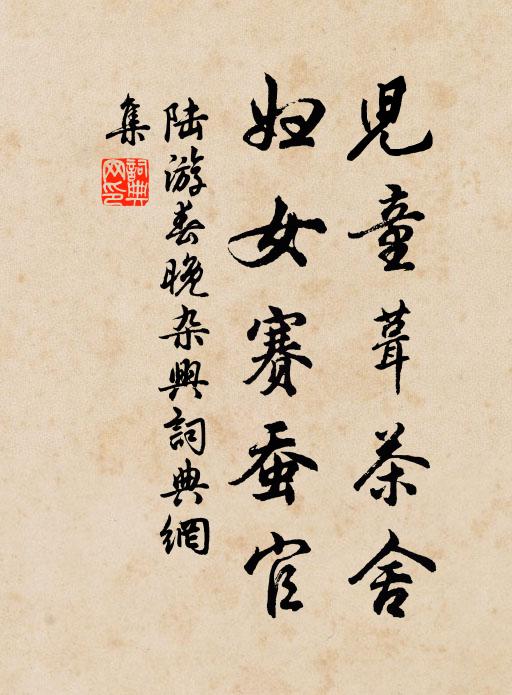 児童葺茶舍
妇女赛蚕官
陆游春晚杂興詞典網
集
詞典网印